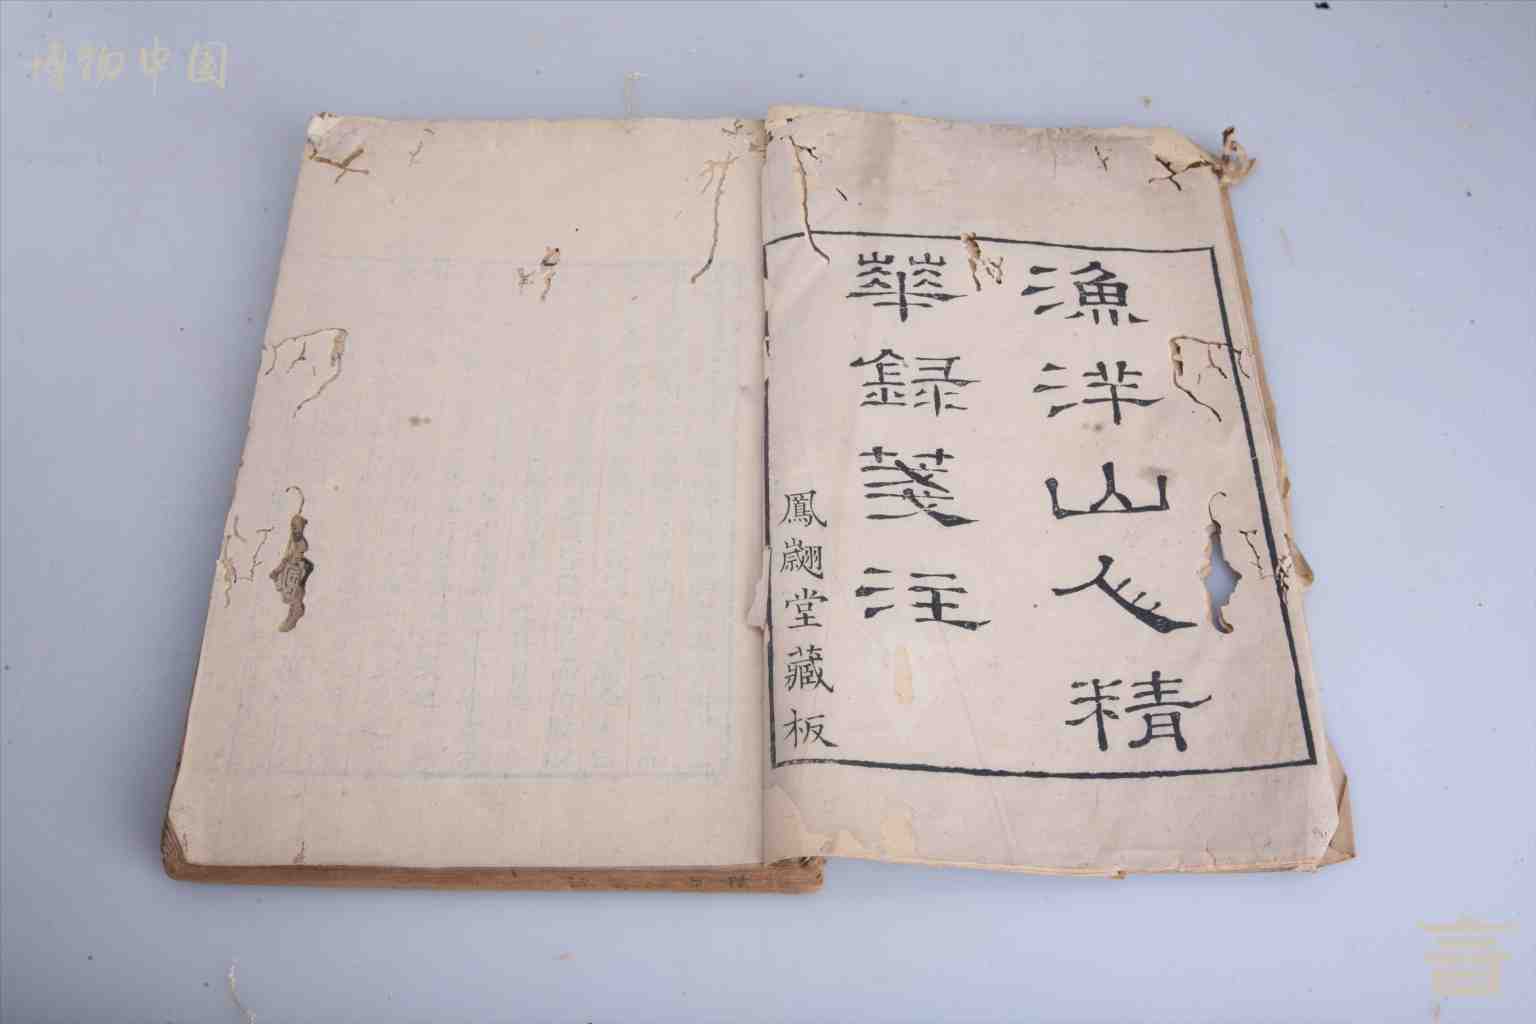 博物中国
漁洋山人精
華録箋注
鳳翽堂藏板